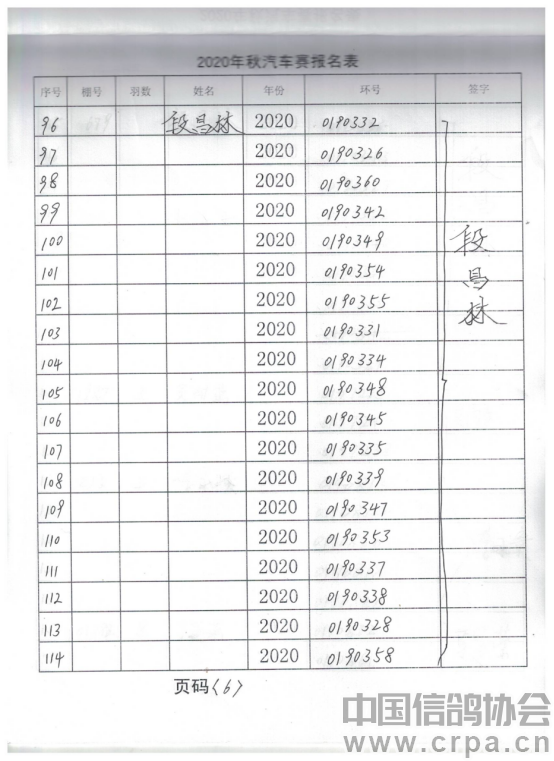 2020年秋汽车赛报名表
序号 棚号 羽数 姓名 年份 环号 签字
96 段昌林 2020 0190332
97 2020 0190326
98 2020 0190360
99 2020 0190342
100 2020 0190349
101 2020 0190354
102 2020 0190355
103 2020 0190331
104 2020 0190334
105 2020 0190348
106 2020 0190345
107 2020 0190335
108 2020 0190339
109 2020 0190347
110 2020 0190353
111 2020 0190337
112 2020 0190338
113 2020 0190328
114 2020 0190358
段昌林
页码(6)
中国信鸽协会
www.crpa.cn